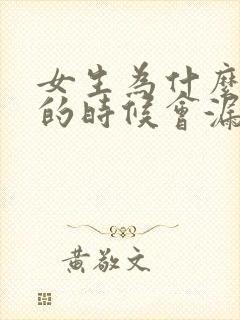 女生為什麼
的時候會漏
黃敬文